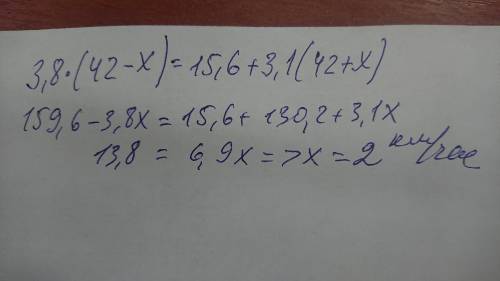 3,8·(42-x)=15,6+3,1(42+x)
159,6-3,8x=15,6+130,2+3,1x
13,8=6,9x=>x=2 км/час